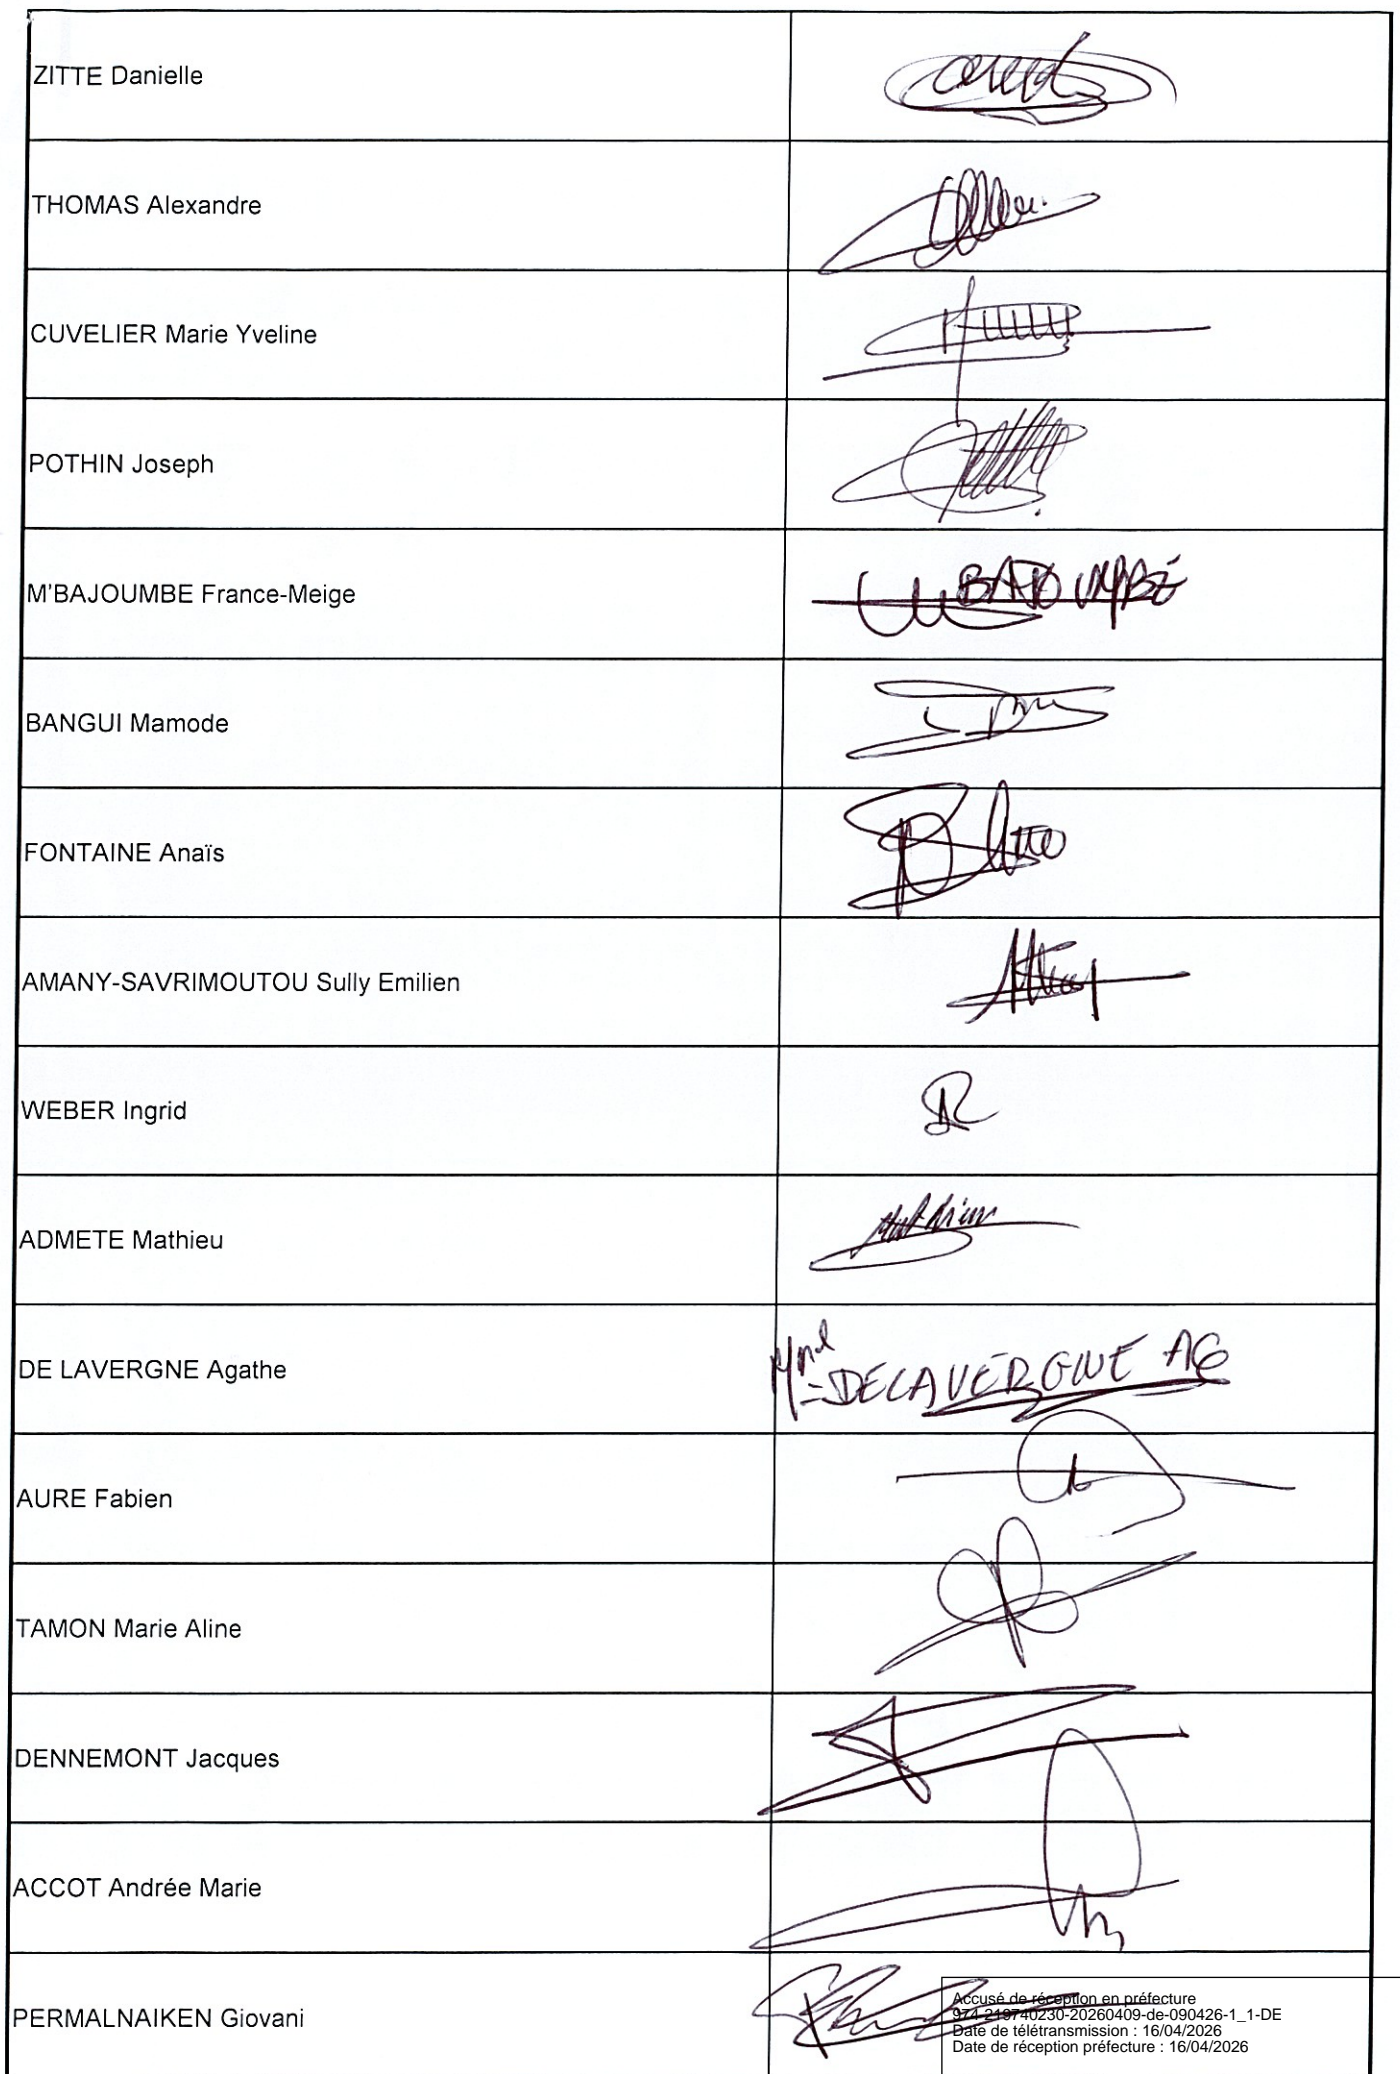 ZITTE Danielle
THOMAS Alexandre
CUVELIER Marie Yveline
POTHIN Joseph
M'BAJOUMBE France-Meige
BANGUI Mamode
FONTAINE Anaïs
AMANY-SAVRIMOUTOU Sully Emilien
WEBER Ingrid
ADMETE Mathieu
Mathieu
DE LAVERGNE Agathe
DELAVERGNE AG
AURE Fabien
TAMON Marie Aline
DENNEMONT Jacques
ACCOT Andrée Marie
PERMALNAIKEN Giovani
Accusé de réception en préfecture
974-219740230-20260409-de-090426-1_1-DE
Date de télétransmission : 16/04/2026
Date de réception préfecture : 16/04/2026